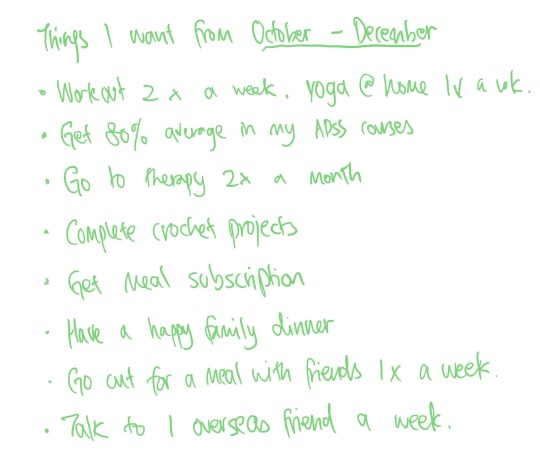 Things I want from October - December
• Workout 2 x a week. Yoga @ home 1x a wk.
• Get 80% average in my ADSS courses
• Go to therapy 2x a month
• Complete crochet projects
• Get meal subscription
• Have a happy family dinner
• Go out for a meal with friends 1x a week.
• Talk to 1 overseas friend a week.